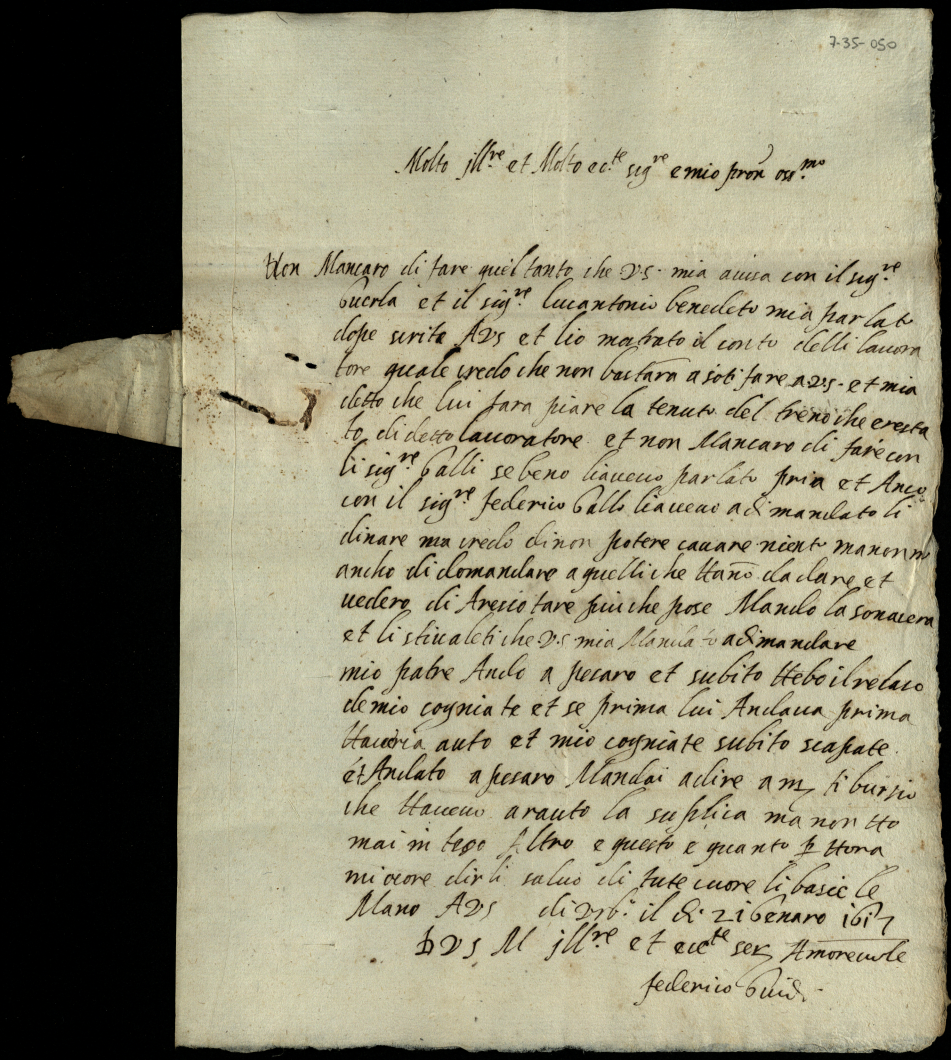 7-35-050
Molto jll.re et Molto ec.te sig.re e mio pron oss.mo
Non Mancaro di fare quel tanto che VS. mia avisa con il sig.re
Guerla et il sig.re lucantonio benedeto mia parlato
dope scrita AVS et lio matrato il conto delli lavora
tore quale credo che non bastara a soti fare a.v.s. et mia
detto che lui fara piare la tenuto del treno che eresta
to di detto lavoratore et non Mancaro di fare con
li sig.re Galli se beno liaveuo parlato pria et Anco
con il sig.re federico Gallo liaveuo adimandato li
dinare ma credo di non potere cavare niento ma non m
ancho di domandare a quelli che Hano da dare et
vedero di Aresciotare piu che pose Mando la
et li stivaleti che VS mia Mandato adimandare
mio patre Ando a pesaro et subito Hebo il
de mio cogniate et se prima lui Andava prima
Haveria auto et mio cogniate subito scapate
et Andato a pesaro Mandai a dire a m tiburzio
che Haveuo arauto la suplica ma non Ho
mai inteso Altro e questo e quanto p Hora
mi ocore dirli salvo di tute cuore li bascie le
Mano AVS di Vrb.o il di 21 Genaro 1617
D VS M jll.re et ecc.te ser Amorevole
federico Guidi